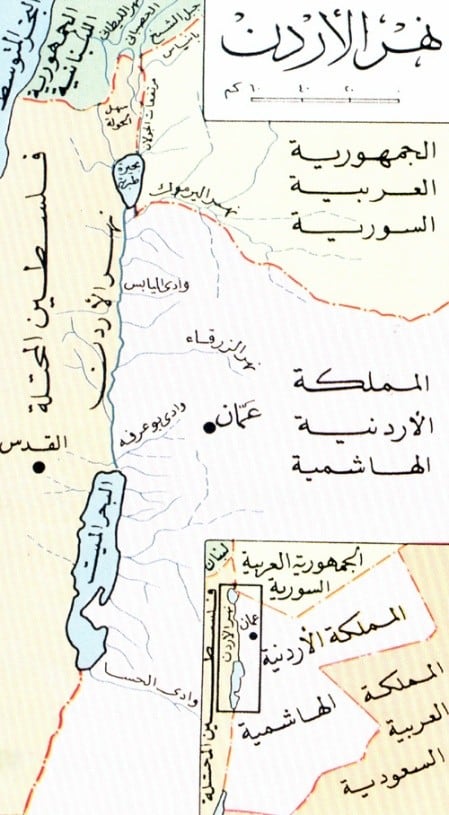 نهر الأردن
٦٠ ٤٠ ٢٠ ٠ كم
البحر المتوسط
الجمهورية
اللبنانية
نهر الليطاني
الحصباني
جبل الشيخ
بانياس
سهل
الحولة
مرتفعات الجولان
بحيرة
طبرية
نهر اليرموك
الجمهورية
العربية
السورية
فلسطين المحتلة
نهر الأردن
وادي اليابس
نهر الزرقاء
المملكة
الأردنية
الهاشمية
عمّان
وادي بو عرفه
القدس
البحر الميت
وادي الحسا
لبنان
الجمهورية العربية
السورية
فلسطين المحتلة
نهر الأردن
عمان
المملكة الأردنية
الهاشمية
المملكة
العربية
السعودية